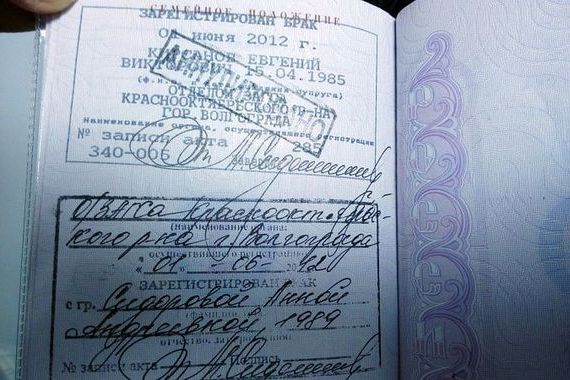 СЕМЕЙНОЕ ПОЛОЖЕНИЕ
ЗАРЕГИСТРИРОВАН БРАК
июня 2012 г.
ЕВГЕНИЙ
ВИКТОРОВИЧ 15.04.1985
ОТДЕЛОМ ЗАГСА
КРАСНООКТЯБРЬСКОГО Р-НА
ГОР. ВОЛГОГРАДА
Наименование органа, осуществившего регистрацию
№ записи акта 285
340-006
АННУЛИРОВАНО
ОЗАГСа Краснооктябрьс-
кого р-на г. Волгограда
(наименование органа,
осуществившего регистрацию)
"01" 06 2012
ЗАРЕГИСТРИРОВАН БРАК
с гр. Сидоровой Анной
Андреевной, 1989
№ записи акта Подпись